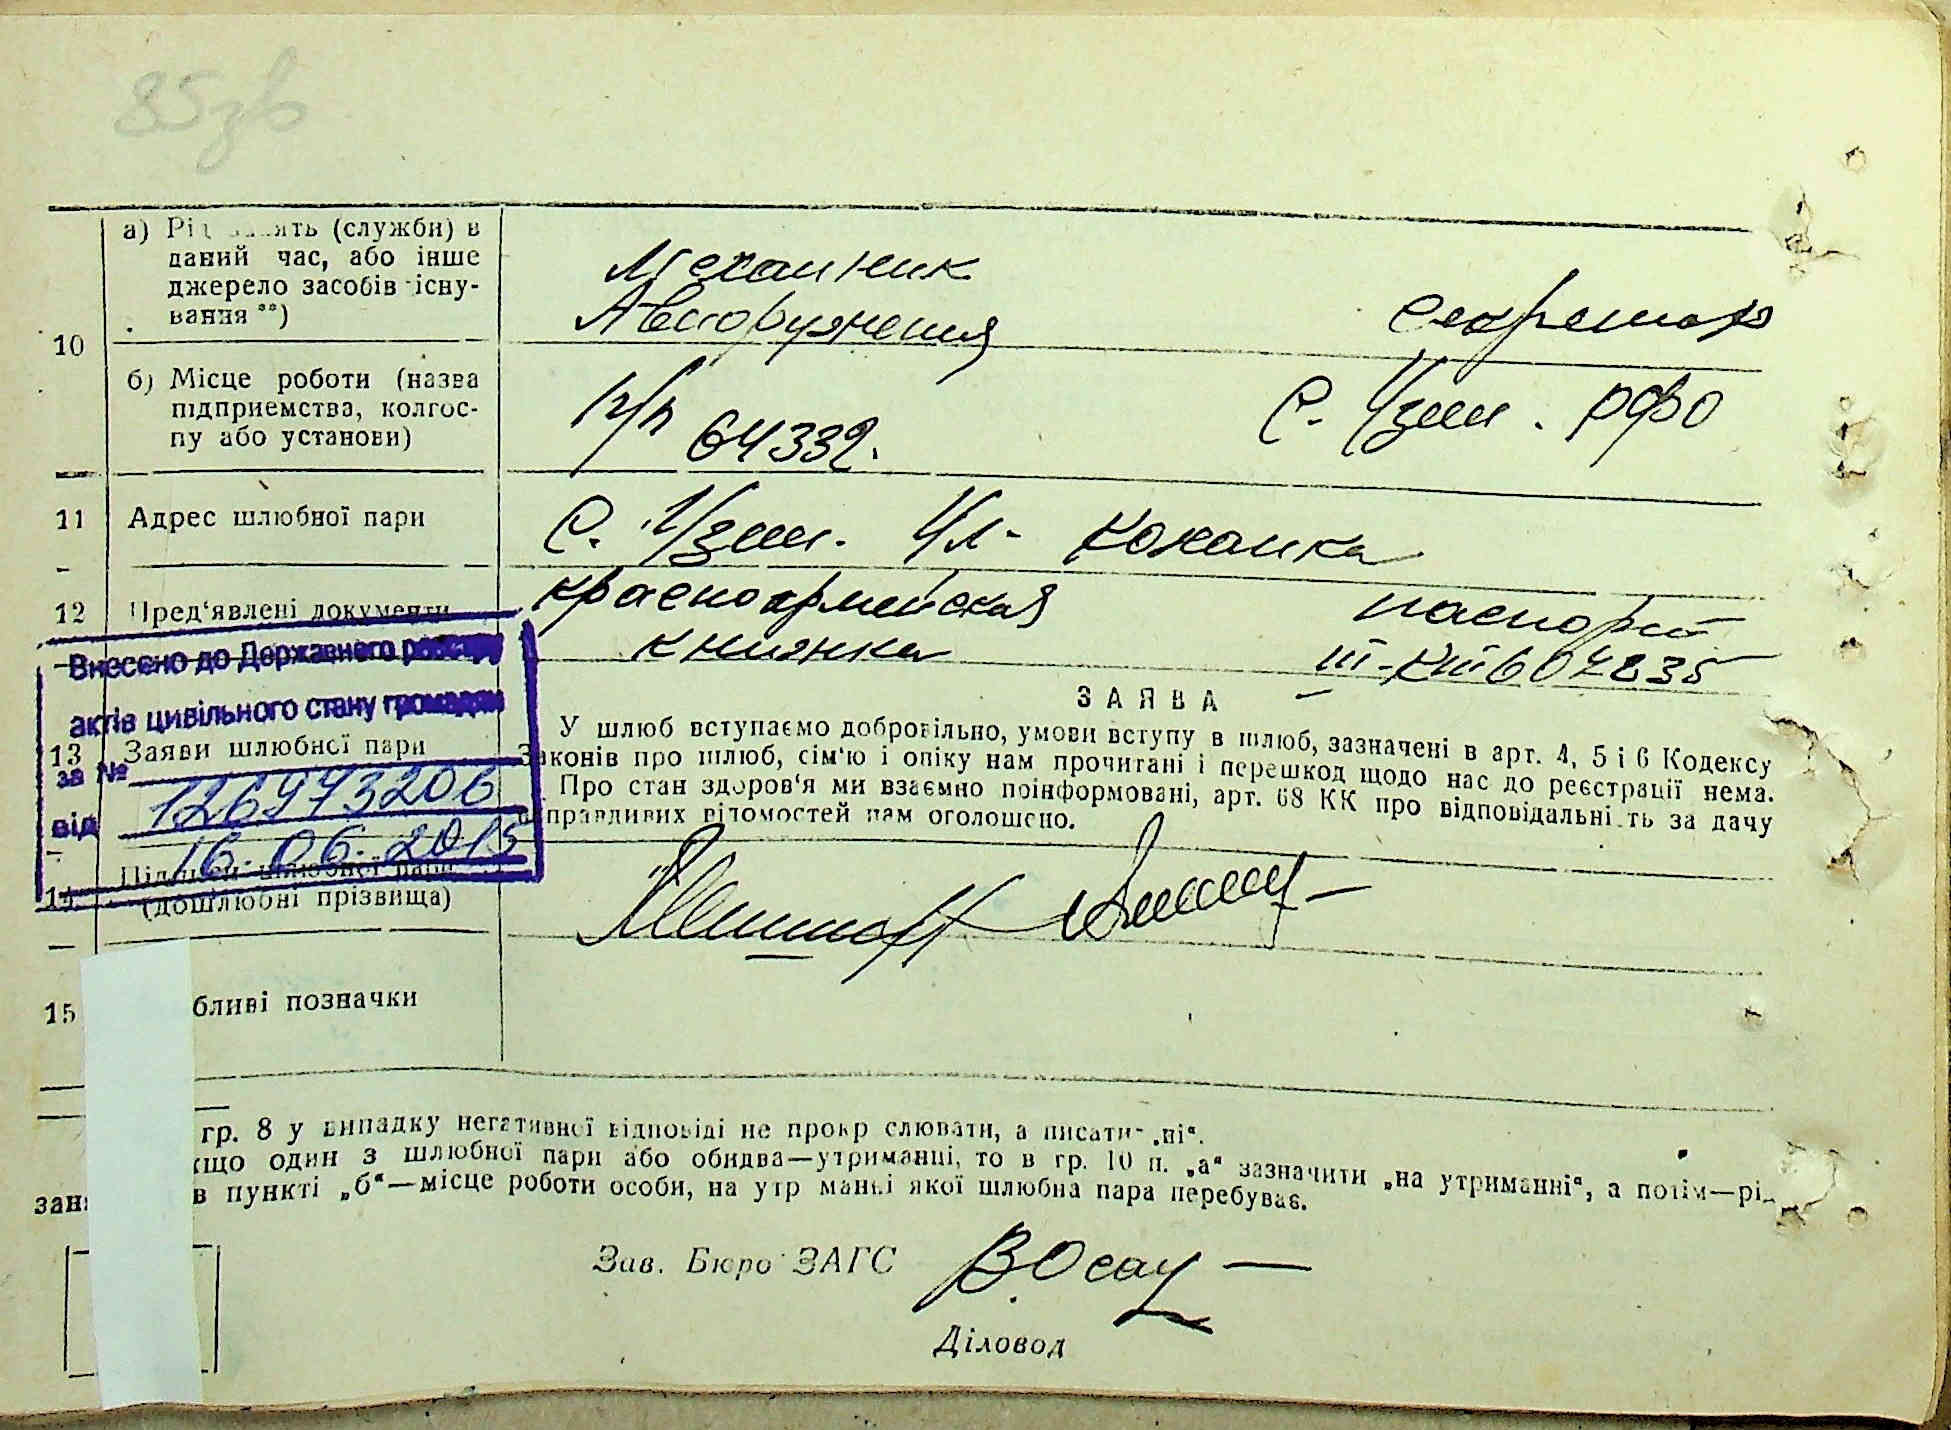 85зв
10
а) Рід занять (служби) в
даний час, або інше
джерело засобів існу-
вання **)
Механик
Авиоружения
Секретар
б) Місце роботи (назва
підприємства, колгос-
пу або установи)
п/п 64332.
С. Узин. РФО
11 Адрес шлюбної пари
С. Узин. Ул-
12 Пред'явлені документи
красноармейская
книжка
паспорт
III-КШ 604835
Внесено до Державного реєстру
актів цивільного стану громадян
за № 126973206
від 16.06.2015
13 Заяви шлюбної пари
ЗАЯВА
У шлюб вступаємо добровільно, умови вступу в шлюб, зазначені в арт. 4, 5 і 6 Кодексу
Законів про шлюб, сім'ю і опіку нам прочитані і перешкод щодо нас до реєстрації нема.
Про стан здоров'я ми взаємно поінформовані, арт. 68 КК про відповідальність за дачу
неправдивих відомостей нам оголошено.
14 Підписи шлюбної пари
(дошлюбні прізвища)
15 бливі позначки
гр. 8 у випадку негативної відповіді не прокр слювати, а писати- „ні“.
кщо один з шлюбної пари або обидва—утриманці, то в гр. 10 п. „а“ зазначити „на утриманні“, а потім—рі
зан в пункті „б“—місце роботи особи, на утр манні якої шлюбна пара перебуває.
Зав. Бюро ЗАГС
Діловод